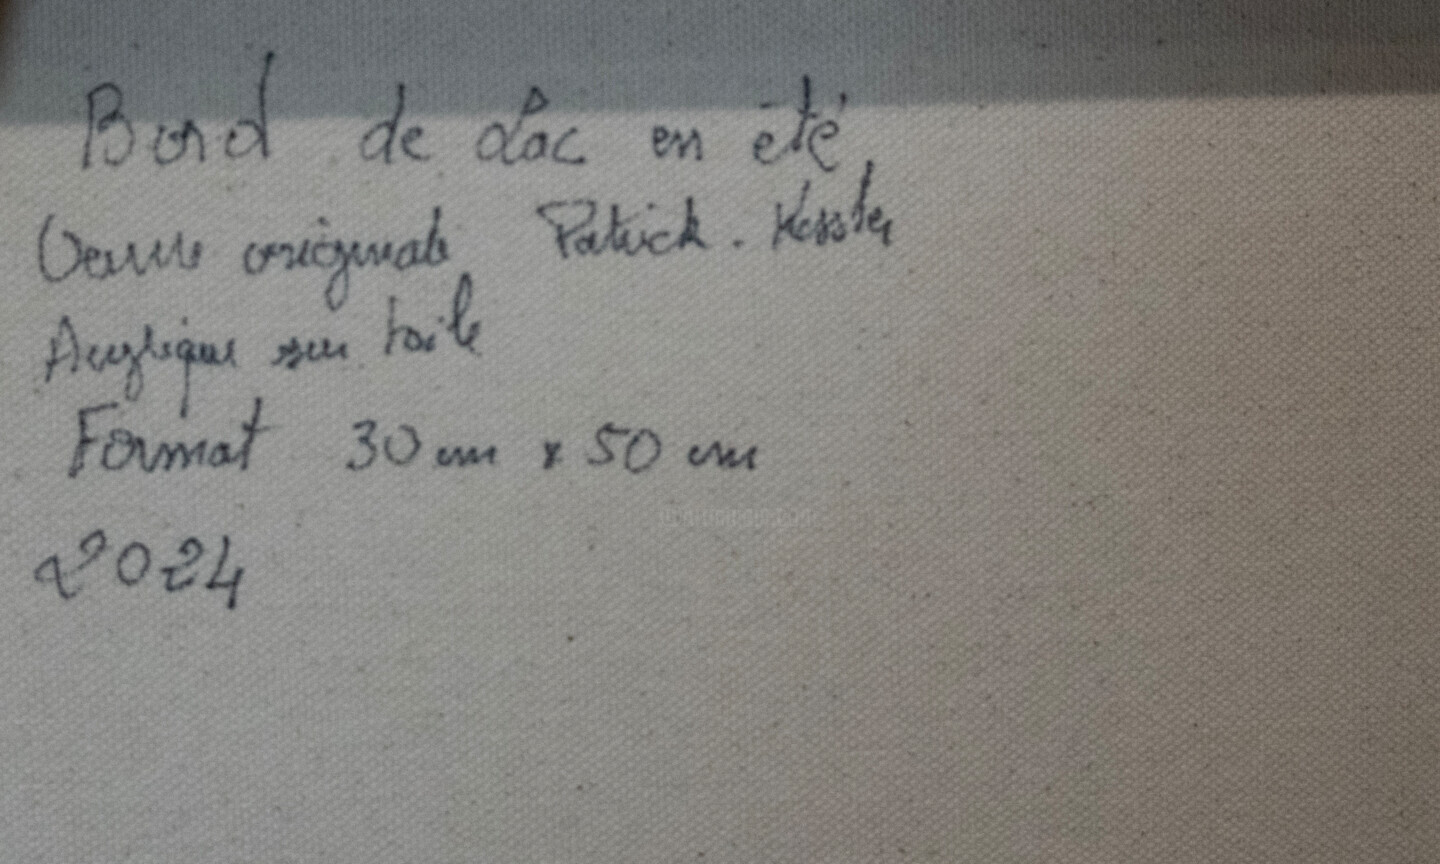 Bord de Lac en été
Oeuvre originale Patrick. Kessler
Acrylique sur toile
Format 30 cm x 50 cm
2024